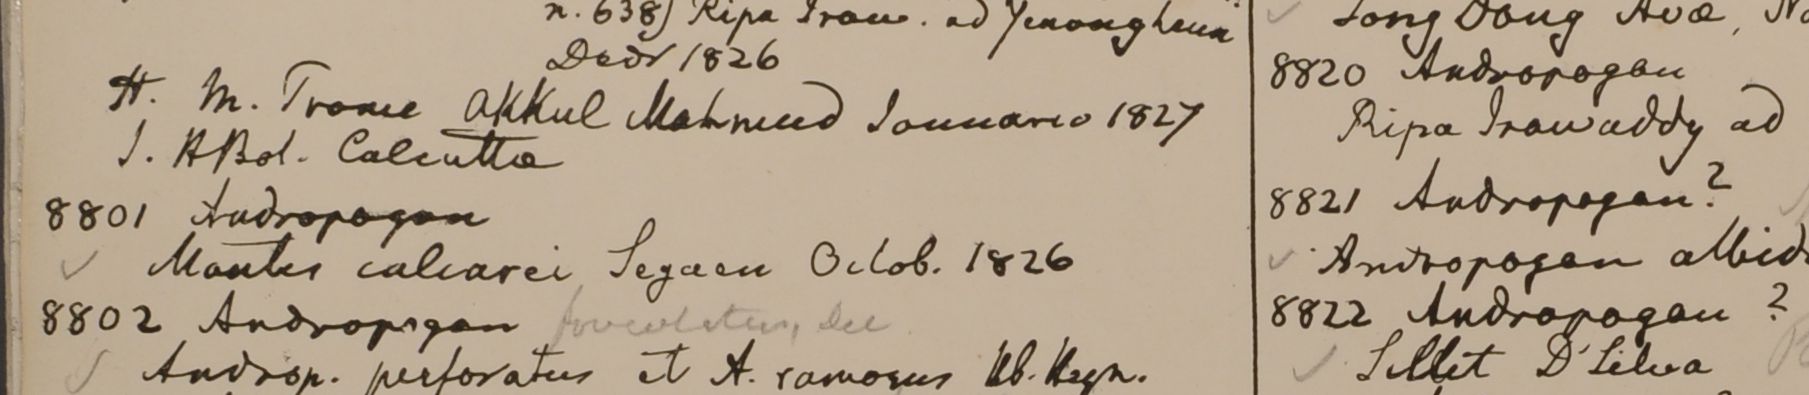 n. 638) Ripa Iraw. ad Yenangheun
Decbr 1826
H. M. Trome Akkul Mahmud Januario 1827
I. HBot. Calcutta
8801 Andropogon
Montes calcarei Segaen Octob. 1826
8802 Andropogon foveolatus, Del
Androp. perforatus et A. ramosus Hb. Heyn.
Tong Dong Avae, No
8820 Andropogon
Ripa Irawaddy ad
8821 Andropogon?
Andropogon albid
8822 Andropogon ?
Sillet D'Silva